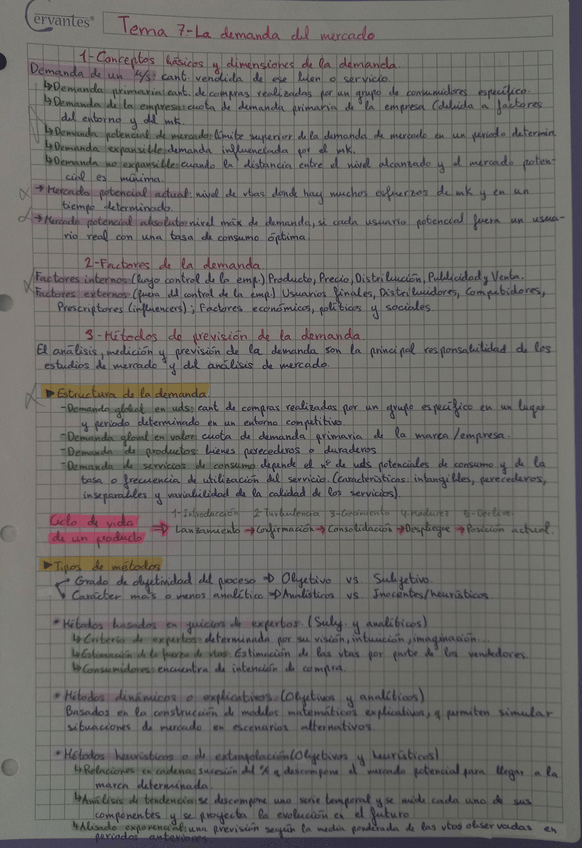 Cervantes
Tema 7-La demanda del mercado
1-Conceptos básicos y dimensiones de la demanda
Demanda de un b/s: cant. vendida de ese bien o servicio.
↳Demanda primaria: cant. de compras realizadas por un grupo de consumidores específico.
↳Demanda de la empresa: cuota de demanda primaria de la empresa (debida a factores
del entorno y del mk.
↳Demanda potencial de mercado: límite superior de la demanda de mercado en un periodo determin.
↳Demanda expansible: demanda influenciada por el mk.
↳Demanda no expansible: cuando la distancia entre el nivel alcanzado y el mercado poten-
cial es mínima.
→ Mercado potencial actual: nivel de vtas donde hay muchos esfuerzos de mk y en un
tiempo determinado.
→ Mercado potencial absoluto: nivel máx de demanda, si cada usuario potencial fuera un usua-
rio real con una tasa de consumo óptima.
2-Factores de la demanda
Factores internos (bajo control de la emp.) Producto, Precio, Distribución, Publicidad y Venta.
Factores externos (fuera del control de la emp.) Usuarios finales, Distribuidores, Competidores,
Prescriptores (influencers); Factores económicos, políticos y sociales.
3-Métodos de previsión de la demanda
El análisis, medición y previsión de la demanda son la principal responsabilidad de los
estudios de mercado y del análisis de mercado.
► Estructura de la demanda.
-Demanda global en uds: cant de compras realizadas por un grupo específico en un lugar
y periodo determinado en un entorno competitivo.
-Demanda global en valor: cuota de demanda primaria de la marca/empresa.
-Demanda de productos: bienes perecederos o duraderos
-Demanda de servicios de consumo: depende el nº de uds potenciales de consumo y de la
tasa o frecuencia de utilización del servicio (características: intangibles, perecederos,
inseparables y variabilidad de la calidad de los servicios).
1-Introducción 2-Turbulencia 3-Crecimiento 4-Madurez 5-Declive
Ciclo de vida ⇒ Lanzamiento → Confirmación → Consolidación → Despliegue → Posición actual.
de un producto
► Tipos de métodos
Grado de objetividad del proceso ⇒ Objetivo vs Subjetivo
Carácter más o menos analítico ⇒ Analísticos vs Inocentes/heurísticos
* Métodos basados en juicios de expertos. (Subj. y analíticos)
↳ Criterio de expertos: determinada por su visión, intuición, imaginación...
↳ Estimación de la fuerza de vtas: Estimación de las vtas por parte de los vendedores.
↳ Consumidores: encuentra de intención de compra.
* Métodos dinámicos o explicativos. (Objetivos y analíticos)
Basados en la construcción de modelos matemáticos explicativos, q permiten simular
situaciones de mercado en escenarios alternativos.
* Métodos heurísticos o de extrapolación (Objetivos y heurísticos)
↳ Relaciones en cadena: sucesión del % q descompone el mercado potencial para llegar a la
marca determinada.
↳ Análisis de tendencia: se descompone una serie temporal y se mide cada uno de sus
componentes y se proyecta la evolución en el futuro.
↳ Alisado exponencial: una previsión según la media ponderada de las vtas observadas en
periodos anteriores